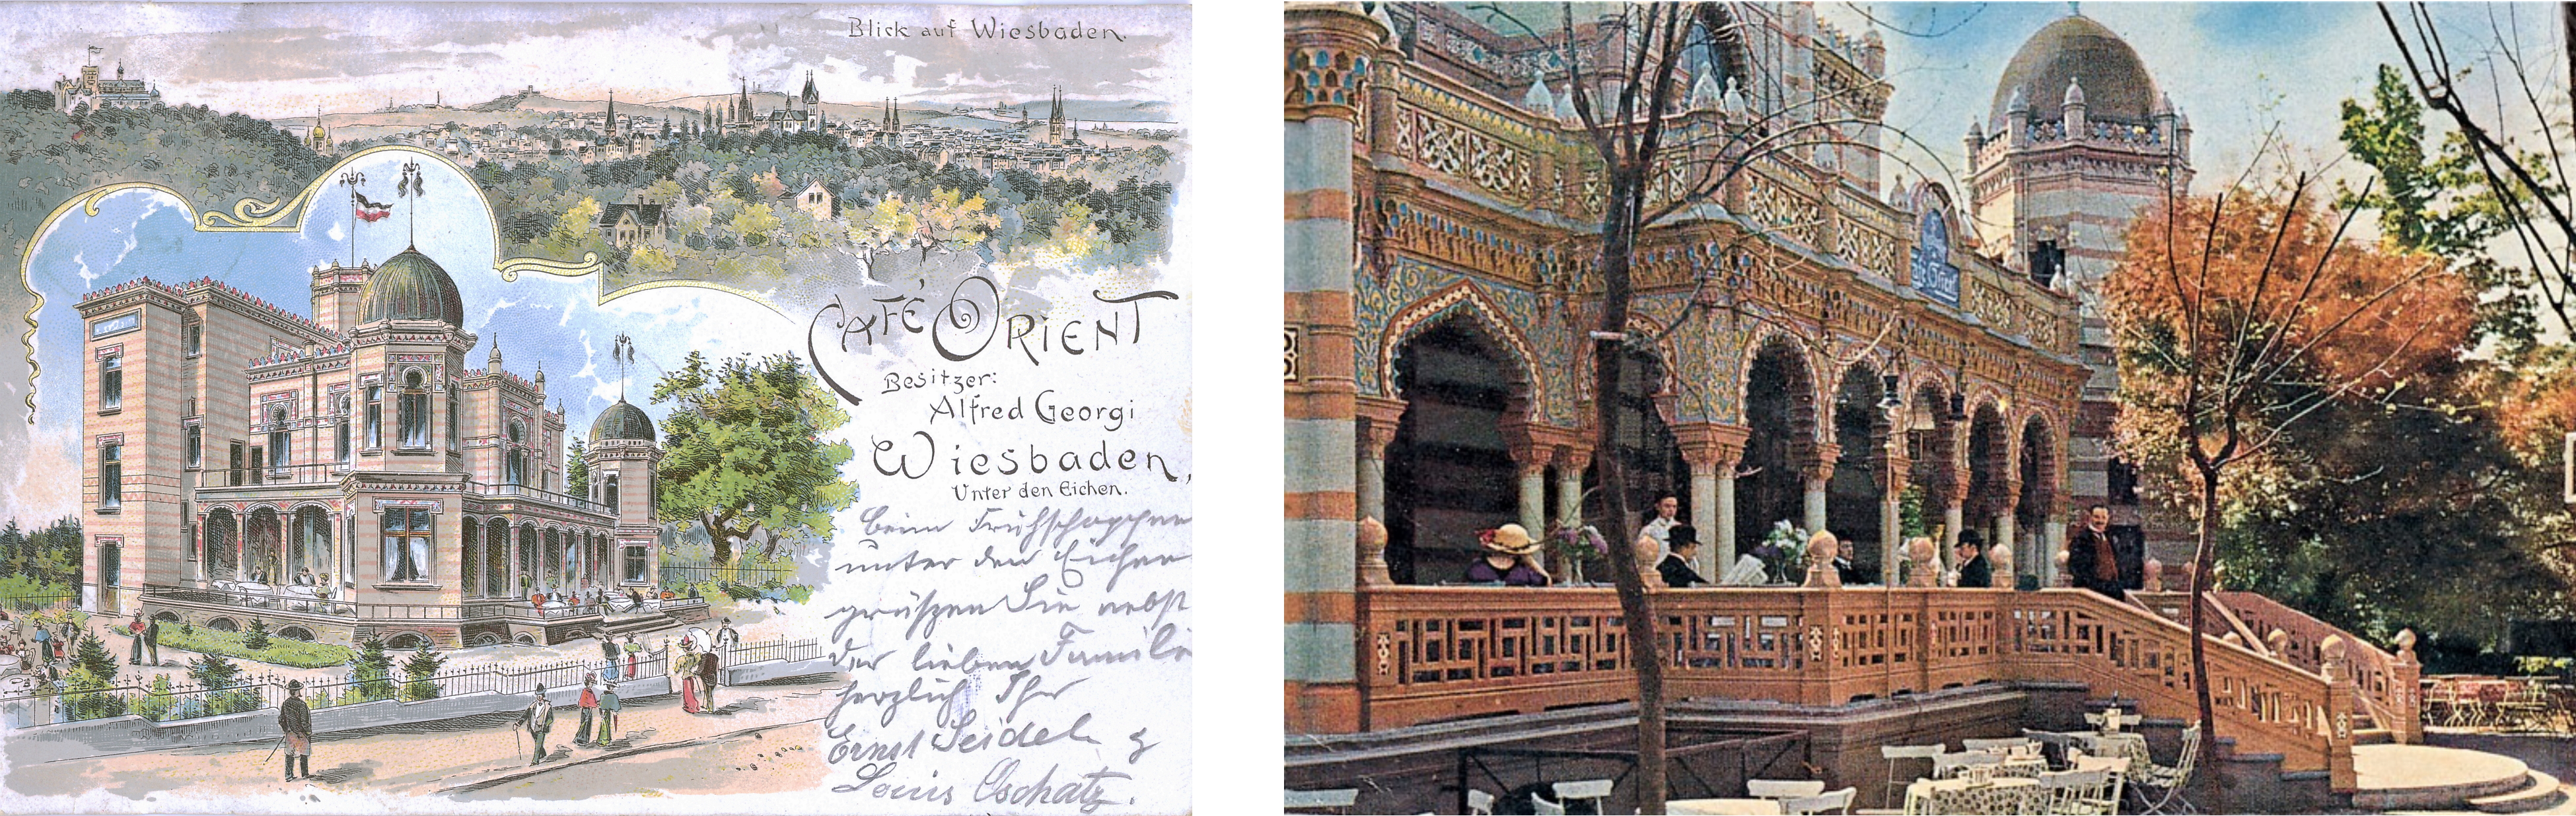 Blick auf Wiesbaden.
CAFÉ ORIENT
Besitzer:
Alfred Georgi
Wiesbaden,
Unter den Eichen.
beim Frühschoppen
unter den Eichen
grüßen Sie nebst
der lieben Famili
herzlich Ihr
Ernst Seidel &
Louis Oschatz.
Café Orient